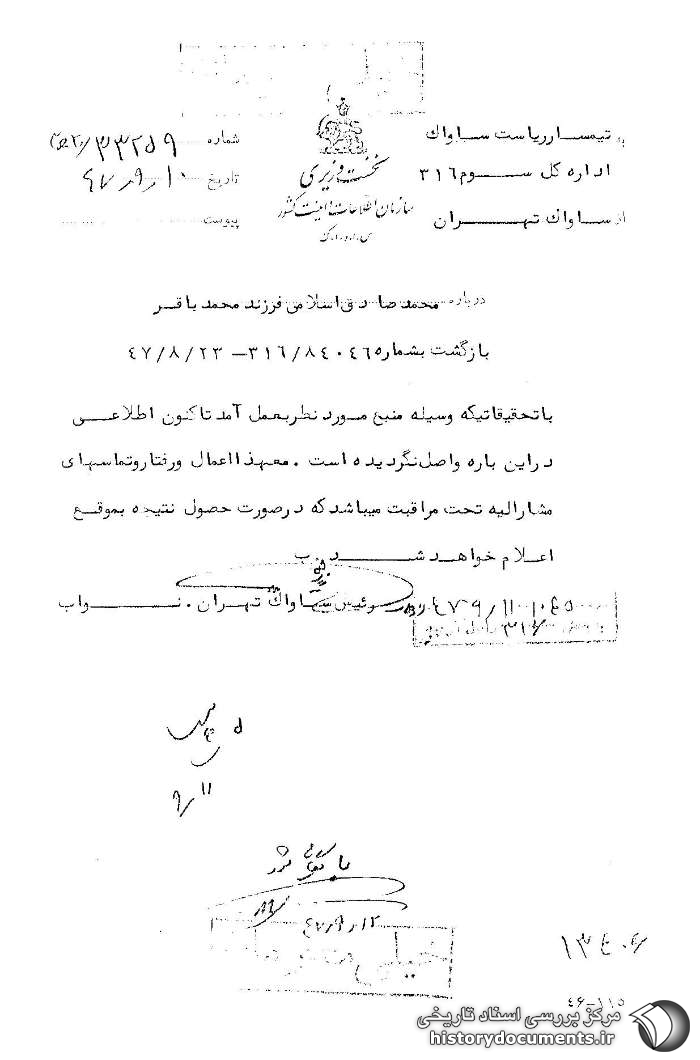 به تیمسار ریاست ساواک
اداره کل سوم ۳۱۶
از ساواک تهران
نخست وزیری
سازمان اطلاعات و امنیت کشور
س.ا.و.ا.ک
شماره ۳۳۲۵۹
تاریخ ۴۷/۹/۱۰
پیوست
درباره محمد صادق اسلامی فرزند محمد باقر
بازگشت بشماره ۳۱۶/۸۴۰۴۶۵ – ۴۷/۸/۲۳
با تحقیقاتیکه وسیله منبع مورد نظر بعمل آمد تاکنون اطلاعی
در این باره واصل نگردیده است . معهذا اعمال و رفتار و تماسهای
مشارالیه تحت مراقبت میباشد که در صورت حصول نتیجه بموقع
اعلام خواهد شد. ب
رئیس ساواک تهران . نواب
۹/۱۱
بایگانی شود
۴۷/۹/۱۲
خیلی محرمانه
۱۳۴۰۶
۴۶-۱۱۵
مرکز بررسی اسناد تاریخی
historydocuments.ir